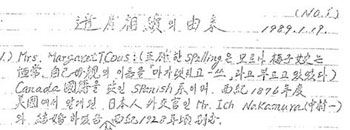 (NO. 1)
1989. 1. 19.
1.) Mrs. Margaret T Cous : (正確한 Spelling은 모르나 梅子女史는
恒常 自己母親의 이름을 마가렛티 라고 부르고 있었다)
Canada 國籍을 가진 Spanish系이며, 西紀 1876年度
英國에서 日本人 外交官인 Mr. Ich Nakamura(中村一)
와 結婚하였음. 西紀 1928年頃 別世.